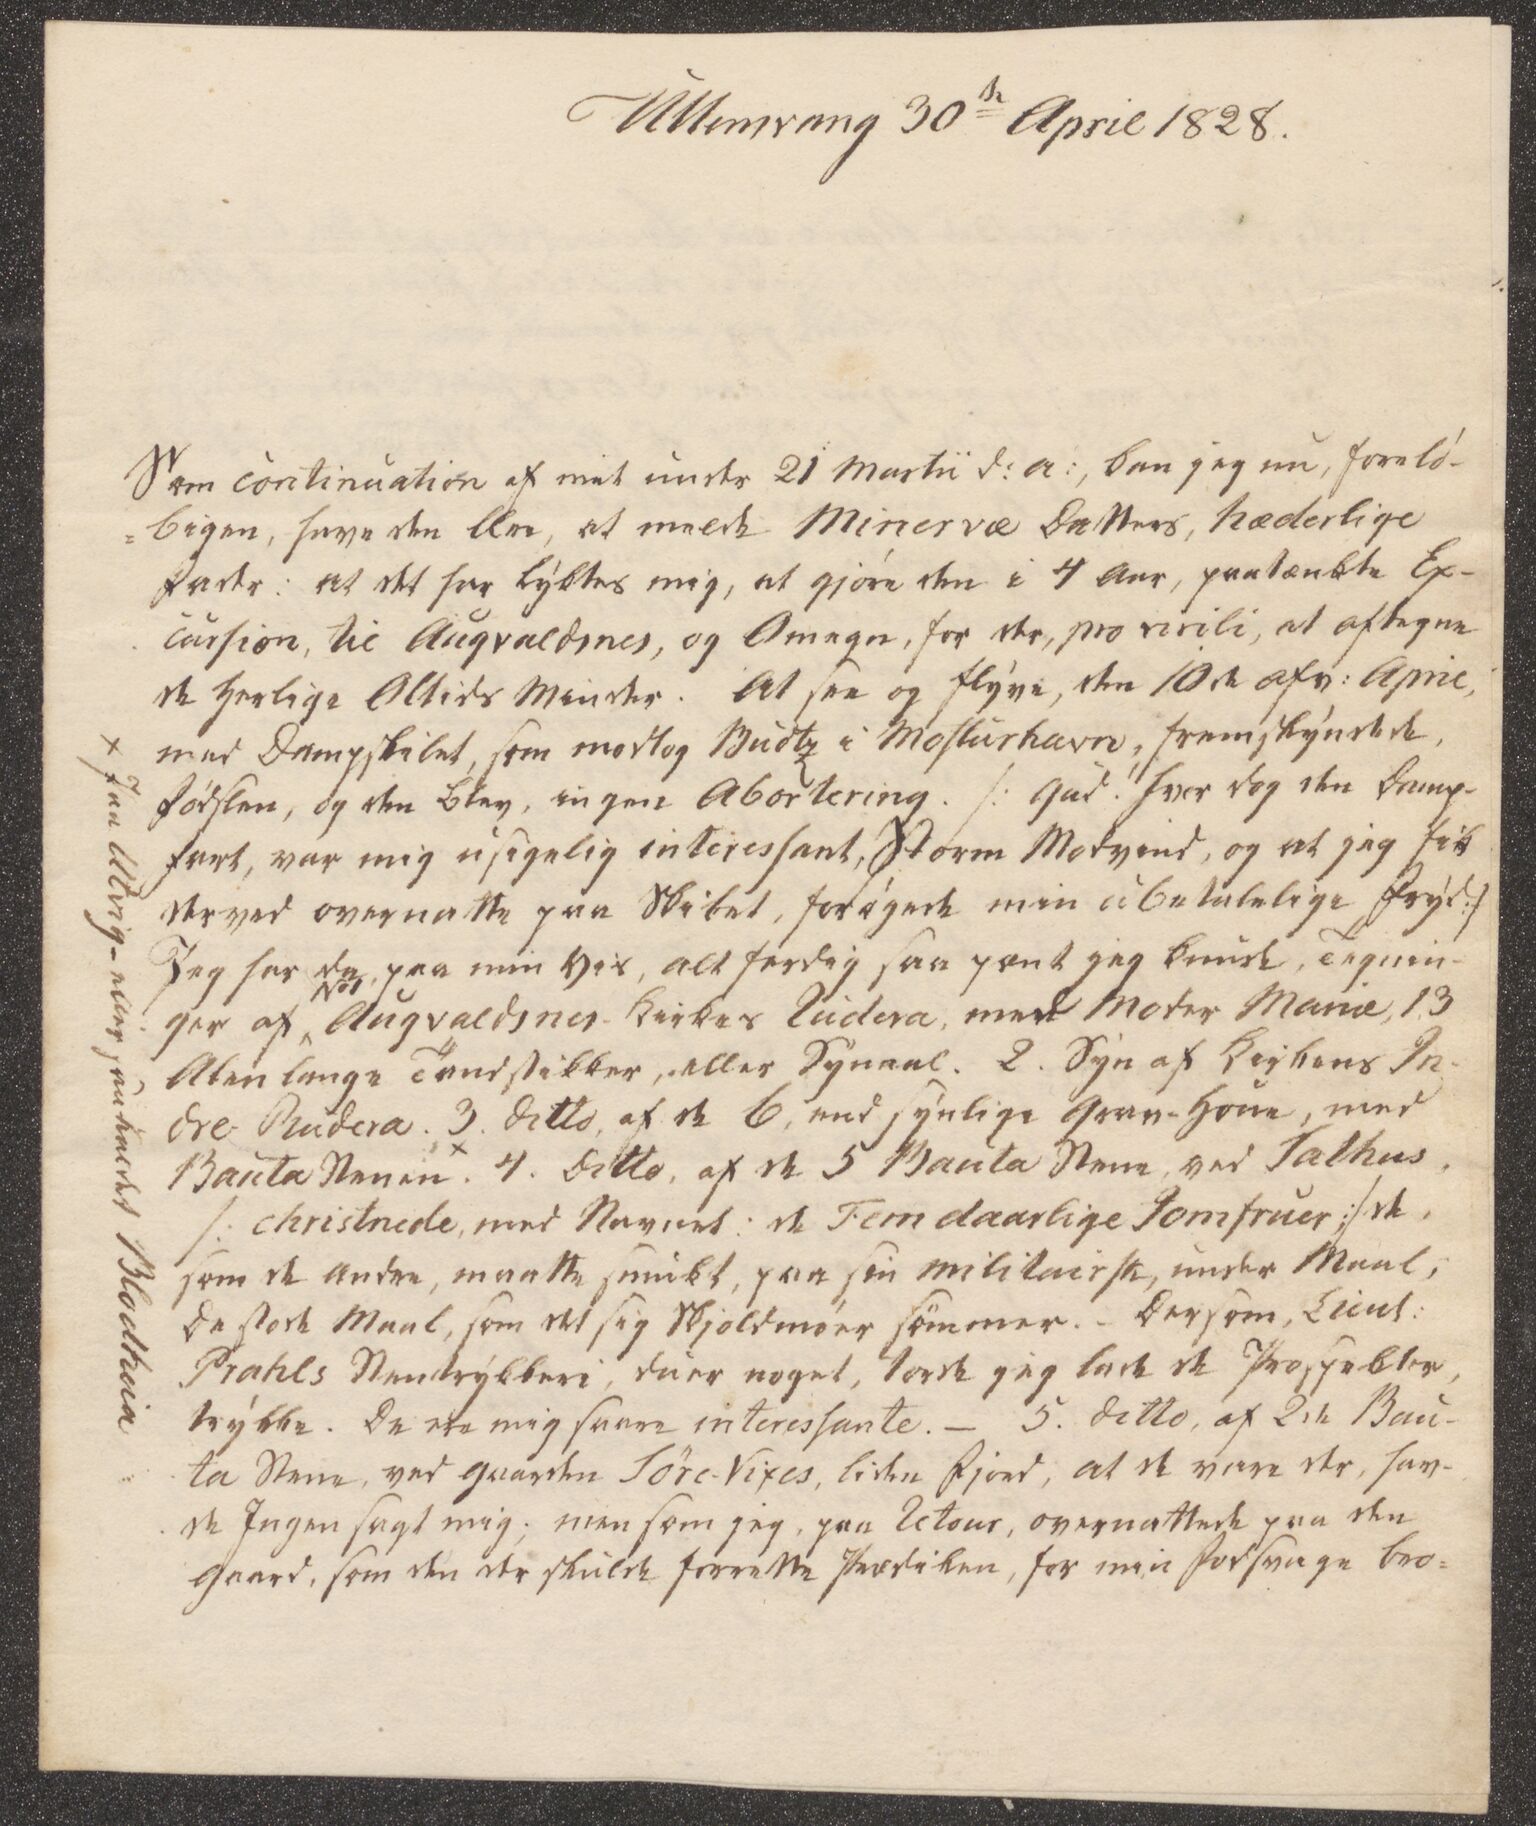 Ullensvang 30te April 1828.
Som Continuation af mit under 21 Martii d: a:, kan jeg nu, forelö-
=bigen, have den Ære, at melde Minervæ Datters, hæderlige
Fader: at det har lykkes mig, at gjöre den i 4 Aar, paatænkte Ex-
cursion, til Augvaldsnes, og Omegn, for der, pro virili, at aftegne
de herlige Oltids Minder. At see og flyve, den 10de afv: April,
med Dampskibet, som modtog Budtz i Mosturhavn, fremskyndede,
Fødslen, og den blev, ingen Abortering. /: Gud! hvor dog den Damp-
fart, var mig usigelig interessant, Storm Modvind, og at jeg fik
derved overnatte paa Skibet, forögede min ubetalelige Fryd:/
Jeg har da, paa min Vis, alt færdig saa pent jeg kunde, Tegnin-
ger af No1 Augvaldsnes-Kirkes Rudera, med Moder Mariæ, 13
Alen lange Tandstikker, eller Synaal. 2. Syn af Kirkens In-
dre Rudera. 3. ditto, af de 6, end synlige Grav-Houe, med
Bauta Stenen x. 4. ditto, af de 5 Bauta Stene, ved Salhus,
/: christnede, med Navnet: de Fem daarlige Jomfruer :/ de,
som de andre, maatte smukt, paa sin militairsk, under Maal,
De stode Maal, som det sig Skjoldmöer sömmer. - Dersom, Lieut:
Prahls Stentrykkeri, duer noget, torde jeg lade de Prospekter,
trykke. De ere mig saare interessante. — 5. ditto, af 2de Bau-
ta Stene, ved Gaarden Söre-Vixes, liden Fjord, at de vare der, hav-
de Ingen sagt mig; men som jeg, paa Retour, overnattede paa den
Gaard, som den der skulde forrette Prædiken, for min Fodsvage bro=
x Jaa Utvig- eller saakaldet Blodheia